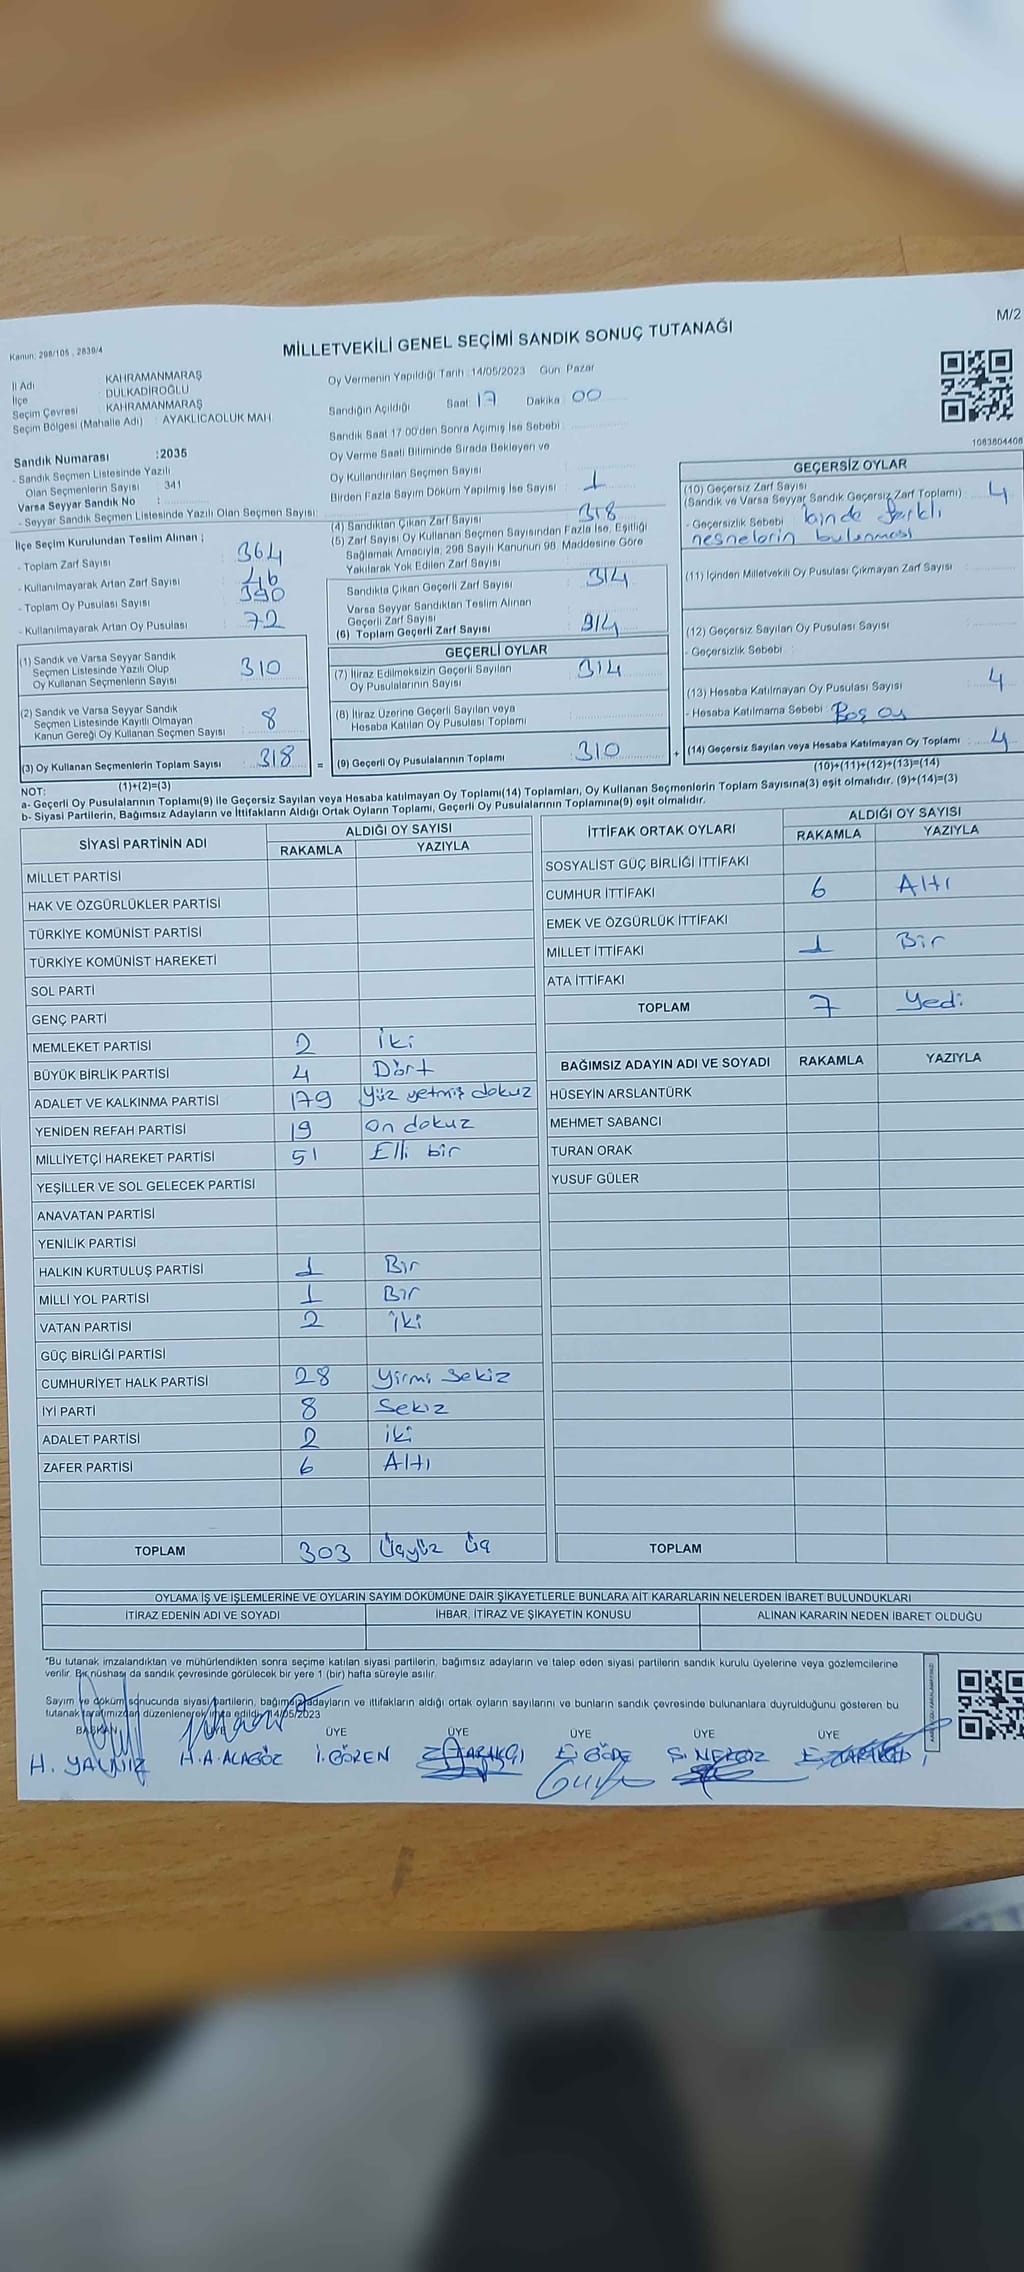 M/2
Kanun: 298/105 , 2839/4
MİLLETVEKİLİ GENEL SEÇİMİ SANDIK SONUÇ TUTANAĞI
İl Adı : KAHRAMANMARAŞ
İlçe : DULKADİROĞLU
Seçim Çevresi : KAHRAMANMARAŞ
Seçim Bölgesi (Mahalle Adı) : AYAKLICAOLUK MAH
Sandık Numarası :2035
- Sandık Seçmen Listesinde Yazılı
Olan Seçmenlerin Sayısı : 341
Varsa Seyyar Sandık No :
- Seyyar Sandık Seçmen Listesinde Yazılı Olan Seçmen Sayısı:
İlçe Seçim Kurulundan Teslim Alınan ;
- Toplam Zarf Sayısı 364
- Kullanılmayarak Artan Zarf Sayısı 46
- Toplam Oy Pusulası Sayısı 390
- Kullanılmayarak Artan Oy Pusulası 72
(1) Sandık ve Varsa Seyyar Sandık
Seçmen Listesinde Yazılı Olup
Oy Kullanan Seçmenlerin Sayısı 310
(2) Sandık ve Varsa Seyyar Sandık
Seçmen Listesinde Kayıtlı Olmayan
Kanun Gereği Oy Kullanan Seçmen Sayısı 8
(3) Oy Kullanan Seçmenlerin Toplam Sayısı 318
(1)+(2)=(3)
Oy Vermenin Yapıldığı Tarih :14/05/2023 Gün: Pazar
Sandığın Açıldığı Saat 17 Dakika 00
Sandık Saat 17.00'den Sonra Açılmış İse Sebebi
Oy Verme Saati Bitiminde Sırada Bekleyen ve
Oy Kullandırılan Seçmen Sayısı
Birden Fazla Sayım Döküm Yapılmış İse Sayısı 1
(4) Sandıktan Çıkan Zarf Sayısı 318
(5) Zarf Sayısı Oy Kullanan Seçmen Sayısından Fazla İse, Eşitliği
Sağlamak Amacıyla, 298 Sayılı Kanunun 98. Maddesine Göre
Yakılarak Yok Edilen Zarf Sayısı
Sandıkta Çıkan Geçerli Zarf Sayısı 314
Varsa Seyyar Sandıktan Teslim Alınan
Geçerli Zarf Sayısı
(6) Toplam Geçerli Zarf Sayısı 314
GEÇERLİ OYLAR
(7) İtiraz Edilmeksizin Geçerli Sayılan
Oy Pusulalarının Sayısı 314
(8) İtiraz Üzerine Geçerli Sayılan veya
Hesaba Katılan Oy Pusulası Toplamı
= (9) Geçerli Oy Pusulalarının Toplamı 310 +
1063804408
GEÇERSİZ OYLAR
(10) Geçersiz Zarf Sayısı
(Sandık ve Varsa Seyyar Sandık Geçersiz Zarf Toplamı) 4
- Geçersizlik Sebebi : İçinde farklı
nesnelerin bulunması
(11) İçinden Milletvekili Oy Pusulası Çıkmayan Zarf Sayısı
(12) Geçersiz Sayılan Oy Pusulası Sayısı
- Geçersizlik Sebebi
(13) Hesaba Katılmayan Oy Pusulası Sayısı 4
- Hesaba Katılmama Sebebi : Boş oy
(14) Geçersiz Sayılan veya Hesaba Katılmayan Oy Toplamı 4
(10)+(11)+(12)+(13)=(14)
NOT:
a- Geçerli Oy Pusulalarının Toplamı(9) ile Geçersiz Sayılan veya Hesaba katılmayan Oy Toplamı(14) Toplamları, Oy Kullanan Seçmenlerin Toplam Sayısına(3) eşit olmalıdır. (9)+(14)=(3)
b- Siyasi Partilerin, Bağımsız Adayların ve İttifakların Aldığı Ortak Oyların Toplamı, Geçerli Oy Pusulalarının Toplamına(9) eşit olmalıdır.
SİYASİ PARTİNİN ADI ALDIĞI OY SAYISI
RAKAMLA YAZIYLA
MİLLET PARTİSİ
HAK VE ÖZGÜRLÜKLER PARTİSİ
TÜRKİYE KOMÜNİST PARTİSİ
TÜRKİYE KOMÜNİST HAREKETİ
SOL PARTİ
GENÇ PARTİ
MEMLEKET PARTİSİ 2 İki
BÜYÜK BİRLİK PARTİSİ 4 Dört
ADALET VE KALKINMA PARTİSİ 179 Yüz yetmiş dokuz
YENİDEN REFAH PARTİSİ 19 On dokuz
MİLLİYETÇİ HAREKET PARTİSİ 51 Elli bir
YEŞİLLER VE SOL GELECEK PARTİSİ
ANAVATAN PARTİSİ
YENİLİK PARTİSİ
HALKIN KURTULUŞ PARTİSİ 1 Bir
MİLLİ YOL PARTİSİ 1 Bir
VATAN PARTİSİ 2 İki
GÜÇ BİRLİĞİ PARTİSİ
CUMHURİYET HALK PARTİSİ 28 Yirmi Sekiz
İYİ PARTİ 8 Sekiz
ADALET PARTİSİ 2 iki
ZAFER PARTİSİ 6 Altı
TOPLAM 303 Üçyüz üç
İTTİFAK ORTAK OYLARI ALDIĞI OY SAYISI
RAKAMLA YAZIYLA
SOSYALİST GÜÇ BİRLİĞİ İTTİFAKI
CUMHUR İTTİFAKI 6 Altı
EMEK VE ÖZGÜRLÜK İTTİFAKI
MİLLET İTTİFAKI 1 Bir
ATA İTTİFAKI
TOPLAM 7 Yedi
BAĞIMSIZ ADAYIN ADI VE SOYADI RAKAMLA YAZIYLA
HÜSEYİN ARSLANTÜRK
MEHMET SABANCI
TURAN ORAK
YUSUF GÜLER
TOPLAM
OYLAMA İŞ VE İŞLEMLERİNE VE OYLARIN SAYIM DÖKÜMÜNE DAİR ŞİKAYETLERLE BUNLARA AİT KARARLARIN NELERDEN İBARET BULUNDUKLARI
İTİRAZ EDENİN ADI VE SOYADI İHBAR, İTİRAZ VE ŞİKAYETİN KONUSU ALINAN KARARIN NEDEN İBARET OLDUĞU
*Bu tutanak imzalandıktan ve mühürlendikten sonra seçime katılan siyasi partilerin, bağımsız adayların ve talep eden siyasi partilerin sandık kurulu üyelerine veya gözlemcilerine
verilir. Bir nüshası da sandık çevresinde görülecek bir yere 1 (bir) hafta süreyle asılır.
Sayım ve döküm sonucunda siyasi partilerin, bağımsız adayların ve ittifakların aldığı ortak oyların sayılarını ve bunların sandık çevresinde bulunanlara duyrulduğunu gösteren bu
tutanak tarafımızdan düzenlenerek imza edildi. 14/05/2023
BAŞKAN ÜYE ÜYE ÜYE ÜYE ÜYE
H. YALNIZ H.A. ALAGÖZ İ. GÖREN E. GÖDE